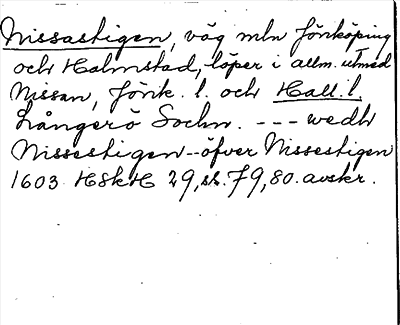 Nissastigen, väg mln Jönköping
och Halmstad, löper i allm. utmed
Nissan, Jönk. l. och Hall. l.
Långerö Sochn. --- wedh
Nissestigen -- öfver Nissestigen
1603 HSkH 29, s. 79, 80. avskr.